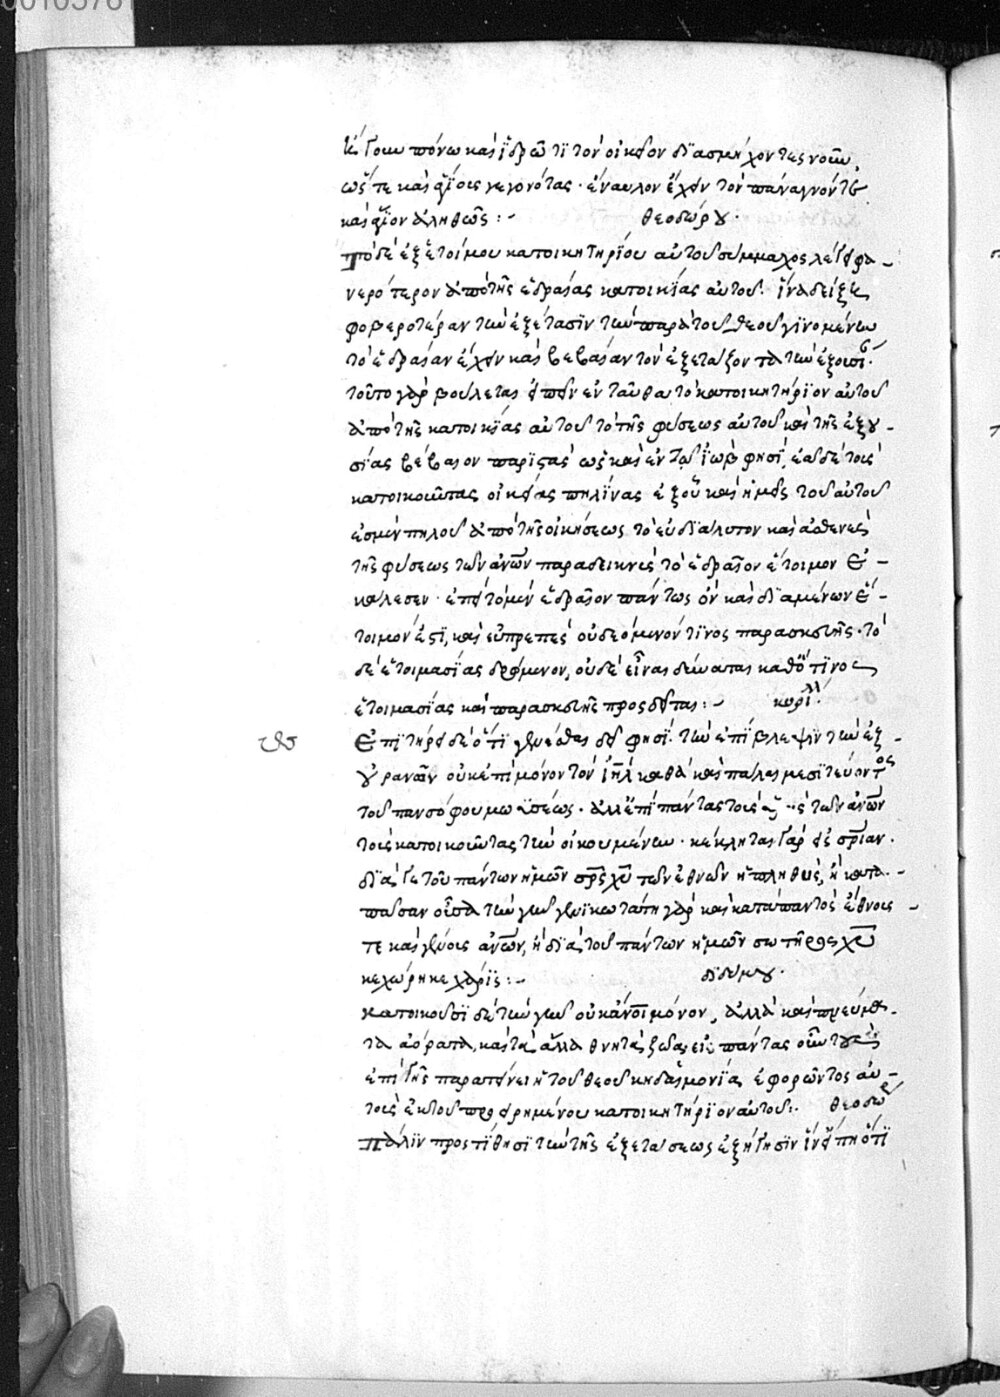 00105781
πόνω καὶ ἱδρῶτι τὸν οἰκεῖον διασμήχοντες νοῦν,
ὥςτε καὶ ἁγίοις γεγονότας· ἔναυλον ἔχειν τὸν πάναγνόν τε
καὶ ἅγιον ἀληθῶς :- θεοδώρου·
Τὸ δὲ ἐξ ἑτοίμου κατοικητηρίου αὐτοῦ σύμμαχος λέγει φα-
νερότερον ἀπὸ τῆς ἑδραίας κατοικίας αὐτοῦ· ἵνα δείξη
φοβεροτέραν τὴν ἐξέτασιν τὴν παρὰ τοῦ θεοῦ γινομένην
τὸ ἑδραίαν ἔχειν καὶ βεβαίαν τὸν ἐξετάζοντα τὴν ἐξουσί·
τοῦτο γὰρ βούλεται εἰπεῖν ἐνταῦθα τὸ κατοικητήριον αὐτοῦ
ἀπὸ τῆς κατοικίας αὐτοῦ τὸ τῆς φύσεως αὐτοῦ καὶ τῆς ἐξου-
σίας βέβαιον παριστὰς ὡς καὶ ἐν τῶ ἰὼβ φησὶ, ἔα δὲ τοὺς
κατοικοῦντας οἰκίας πηλίνας ἐξ οὗ καὶ ἡμεῖς τοῦ αὐτοῦ
ἐσμὲν πηλοῦ ἀπὸ τῆς οἰκήσεως τὸ εὐδιάλυτον καὶ ἀσθενὲς
τῆς φύσεως τῶν ἀνων παραδεικνὺς τὸ ἑδραῖον ἕτοιμον ἐ-
κάλεσεν· ἐπεὶ τὸ μὲν ἑδραῖον πάντως ὂν καὶ διαμένων ἕ-
τοιμόν ἐστι, καὶ εὐπρεπὲς οὐ δεόμενόν τινος παρασκευῆς· τὸ
δὲ ἑτοιμασίας δεόμενον, οὐδὲ εἶναι δύναται καθό τινος
ἑτοιμασίας καὶ παρασκευῆς προςδεῖται :- κυρίλλ·
Ἐπιτηρεῖ δὲ ὅτι φησὶ· τὴν ἐπίβλεψιν τὴν ἐξ
οὐρανῶν οὐκ ἐπὶ μόνον τὸν ιηλ καθὰ καὶ πάλαι μεσιτεύοντος
τοῦ πανσόφου μωϋσέως· ἀλλ' ἐπὶ πάντας τοὺς τῶν ἀνων
τοὺς κατοικοῦντας τὴν οἰκουμένην· κέκληται γὰρ εἰς σριαν·
διά γε τοῦ πάντων ἡμῶν σρς χυ τῶν ἐθνῶν ἡ πληθὺς, ἡ κατὰ
πᾶσαν οὖσα τὴν γῆν καὶ κατὰ παντὸς ἔθνους
τε καὶ γένους ἀνων, ἡ διὰ τοῦ πάντων ἡμῶν σωτῆρος χυ
κεχώρηκε χάρις :- διδύμου·
κατοικοῦσι δὲ τὴν γῆν οὐκ ἄνοι μόνον, ἀλλὰ καὶ πνεύμα-
τα ἀόρατα, καὶ τὰ ἄλλα θνητὰ ζῶα εἰς πάντας οὖν τοὺς
ἐπὶ γῆς παρατείνει ἡ τοῦ θεοῦ κηδεμονία ἐφορῶντος αὐ-
τοὺς ἐκ τοῦ προειρημένου κατοικητηρίου αὐτοῦ :. θεοδώρ
Πάλιν προςτίθησι τὴν τῆς ἐξετάσεως ἐξήγησιν ἵν' εἴπη ὅτι